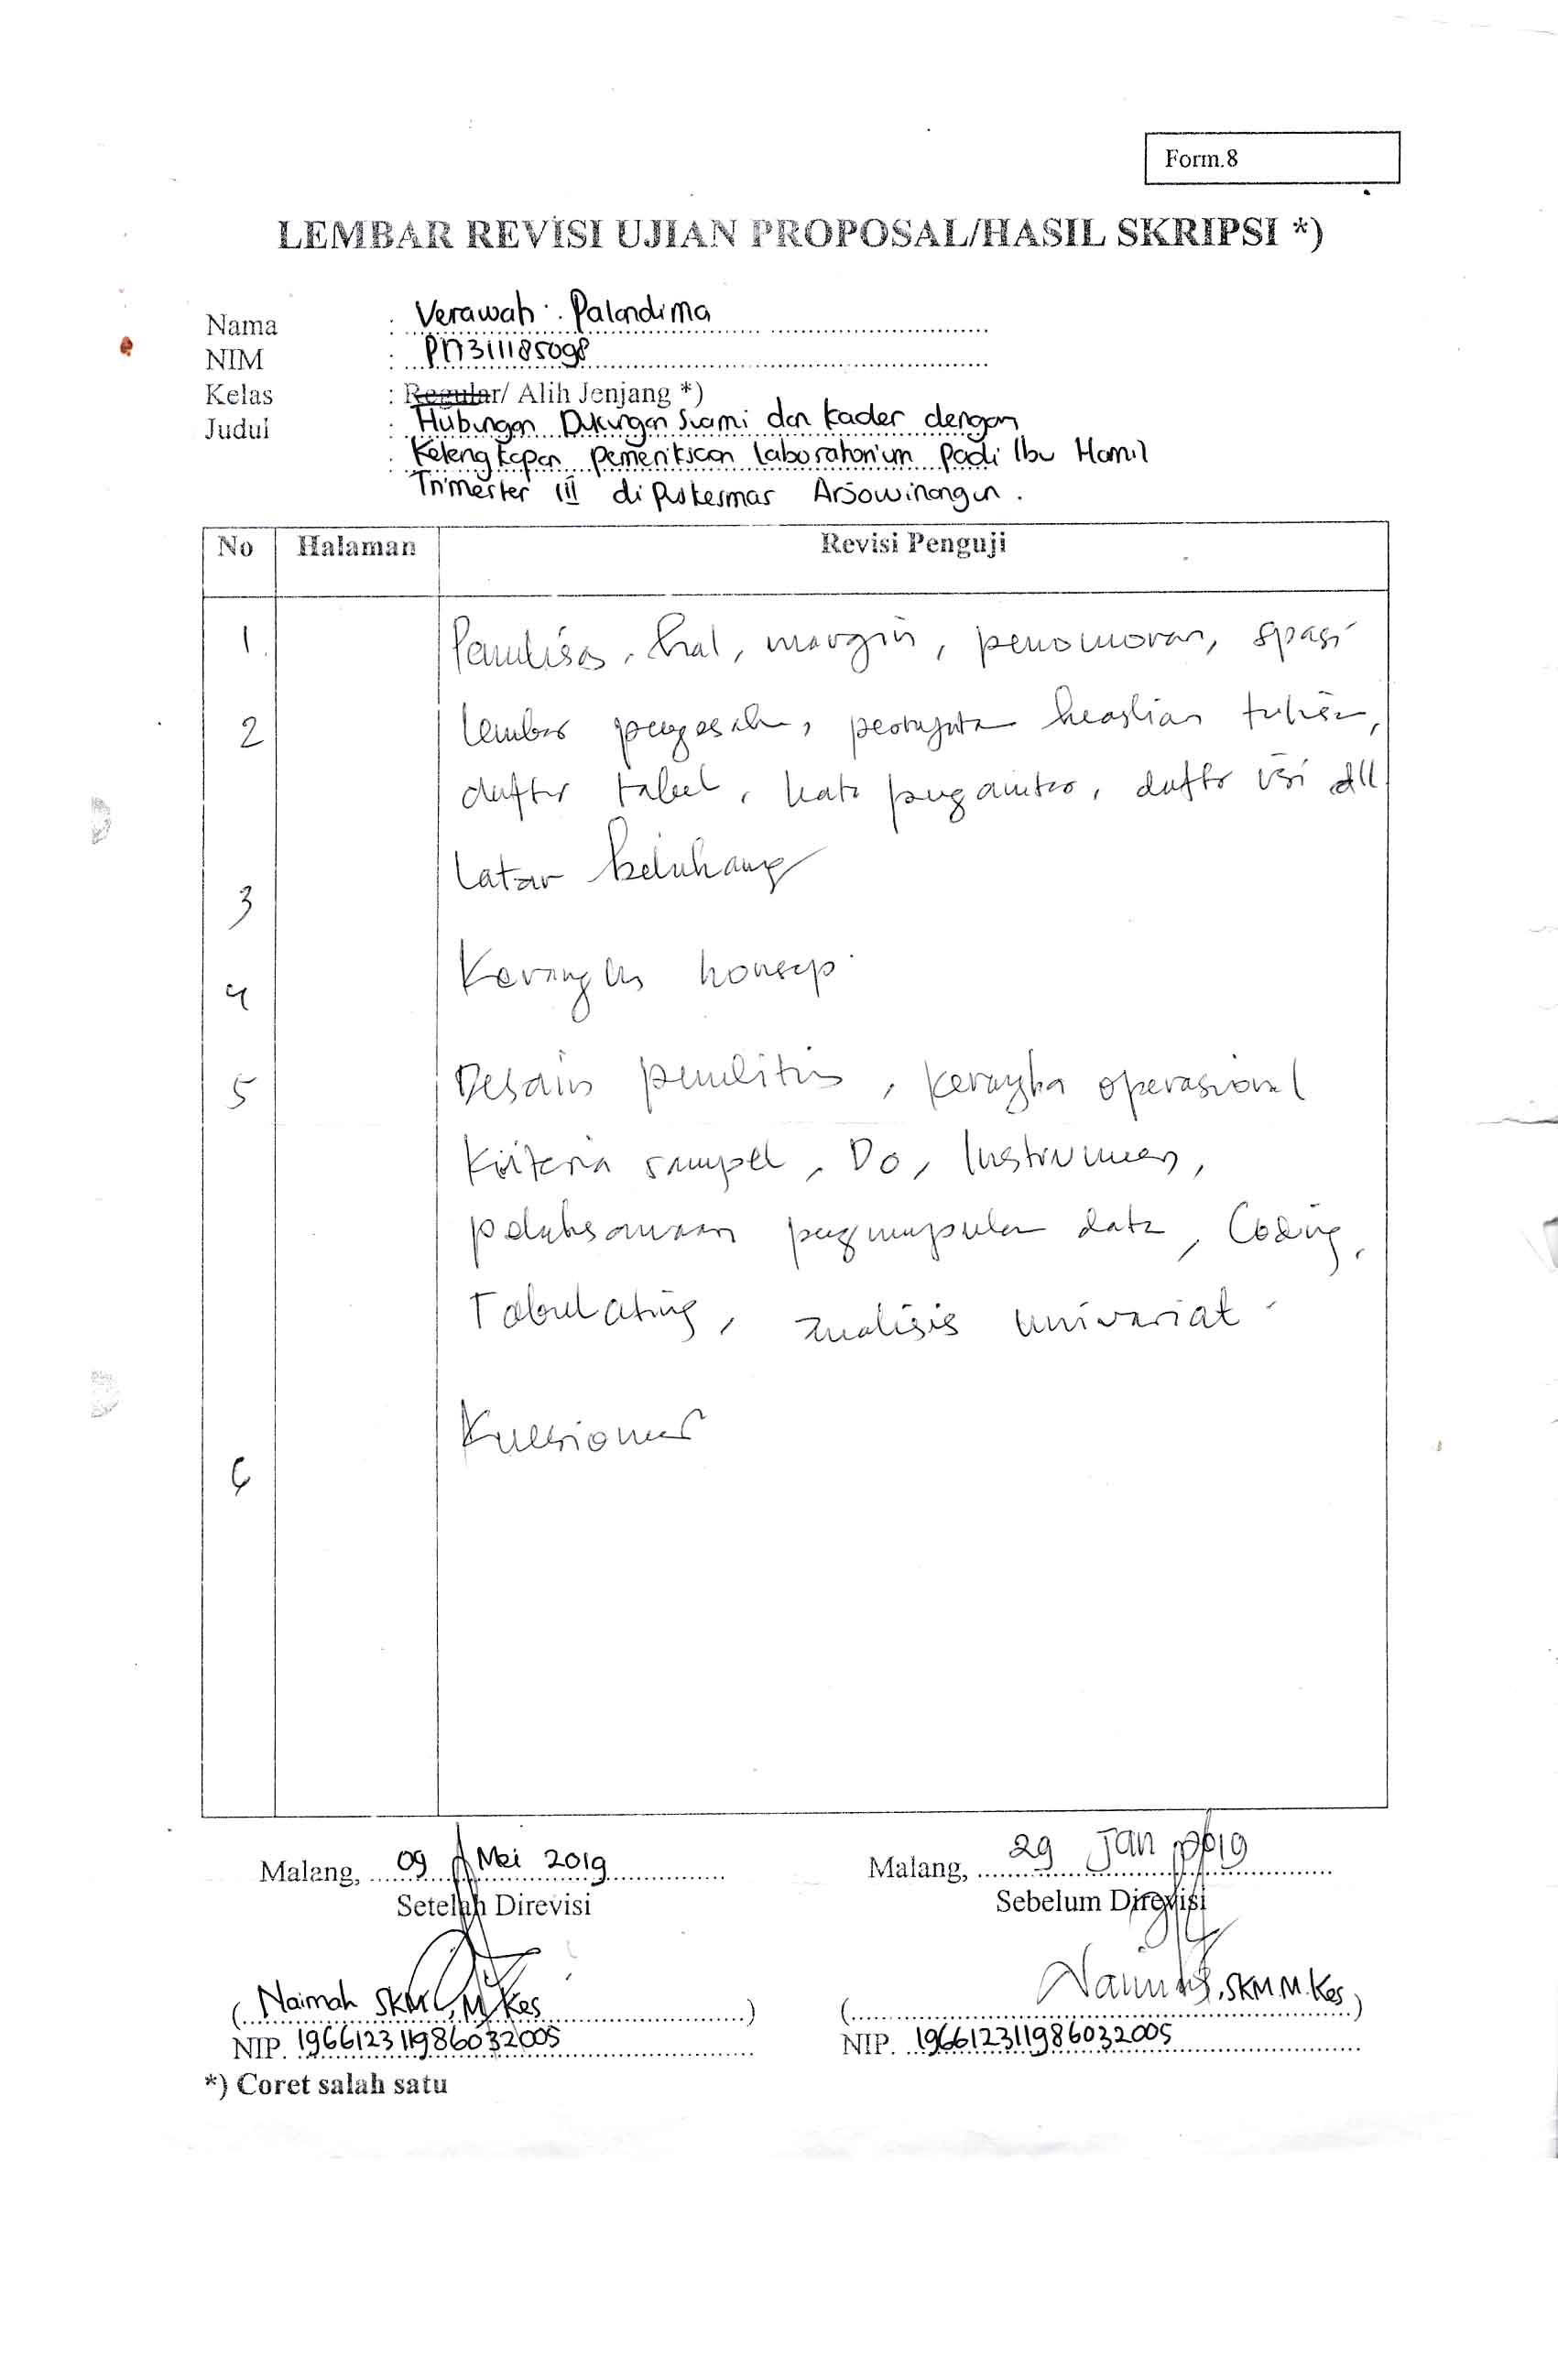 Form.8
LEMBAR REVISI UJIAN PROPOSAL/HASIL SKRIPSI *)
Nama : Verawati Palandima
NIM : P17311185098
Kelas : Regular/ Alih Jenjang *)
Judul : Hubungan Dukungan Suami dan Kader dengan
: Kelengkapan pemeriksaan Laboratorium pada Ibu Hamil
Trimester III di Puskesmas Arjowinangun.
No Halaman Revisi Penguji
1. Penulisan, hal, margin, penomoran, spasi
2 Lembar pengesahan, pernyataan keaslian tulisan,
daftar tabel, kata pengantar, daftar isi dll
3 Latar belakang
4 Kerangka konsep
5 Desain penelitian, Kerangka operasional
Kriteria sampel, Do, Instrumen,
pelaksanaan pengumpulan data, Coding,
Tabulating, analisis univariat
6 Kuesioner
Malang, 09 Mei 2019 Malang, 29 Jan 2019
Setelah Direvisi Sebelum Direvisi
(Naimah SKM., M.Kes) (Naimah, SKM M.Kes)
NIP. 196612311986032005 NIP. 196612311986032005
*) Coret salah satu